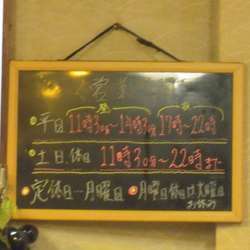 営業
昼 夜
平日 11時30分~14時30分 17時~22時
土.日.休日 11時30分~22時まで
定休日-月曜日 月曜日休日は火曜日
お休み